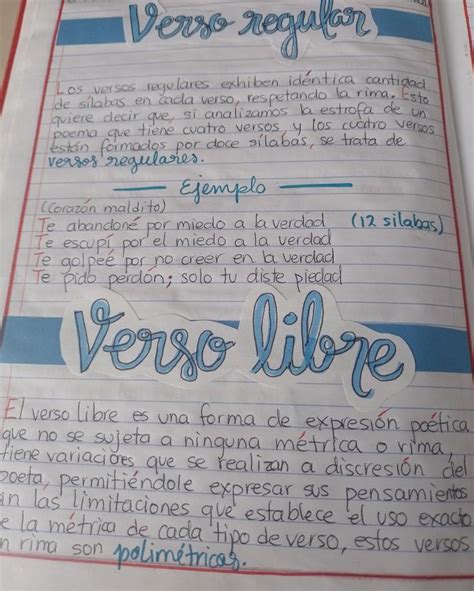 Verso regular
Los versos regulares exhiben idéntica cantidad
de sílabas en cada verso, respetando la rima. Esto
quiere decir que, si analizamos la estrofa de un
poema que tiene cuatro versos y los cuatro versos
están formados por doce sílabas, se trata de
versos regulares.
Ejemplo
(Corazón maldito)
Te abandoné por miedo a la verdad (12 silabas)
Te escupí por el miedo a la verdad
Te golpeé por no creer en la verdad
Te pido perdón; solo tu diste piedad
Verso libre
El verso libre es una forma de expresión poética
que no se sujeta a ninguna métrica o rima,
tiene variaciones que se realizan a discresión del
poeta, permitiéndole expresar sus pensamientos
in las limitaciones que establece el uso exacto
e la métrica de cada tipo de verso, estos versos
n rima son polimétricos.